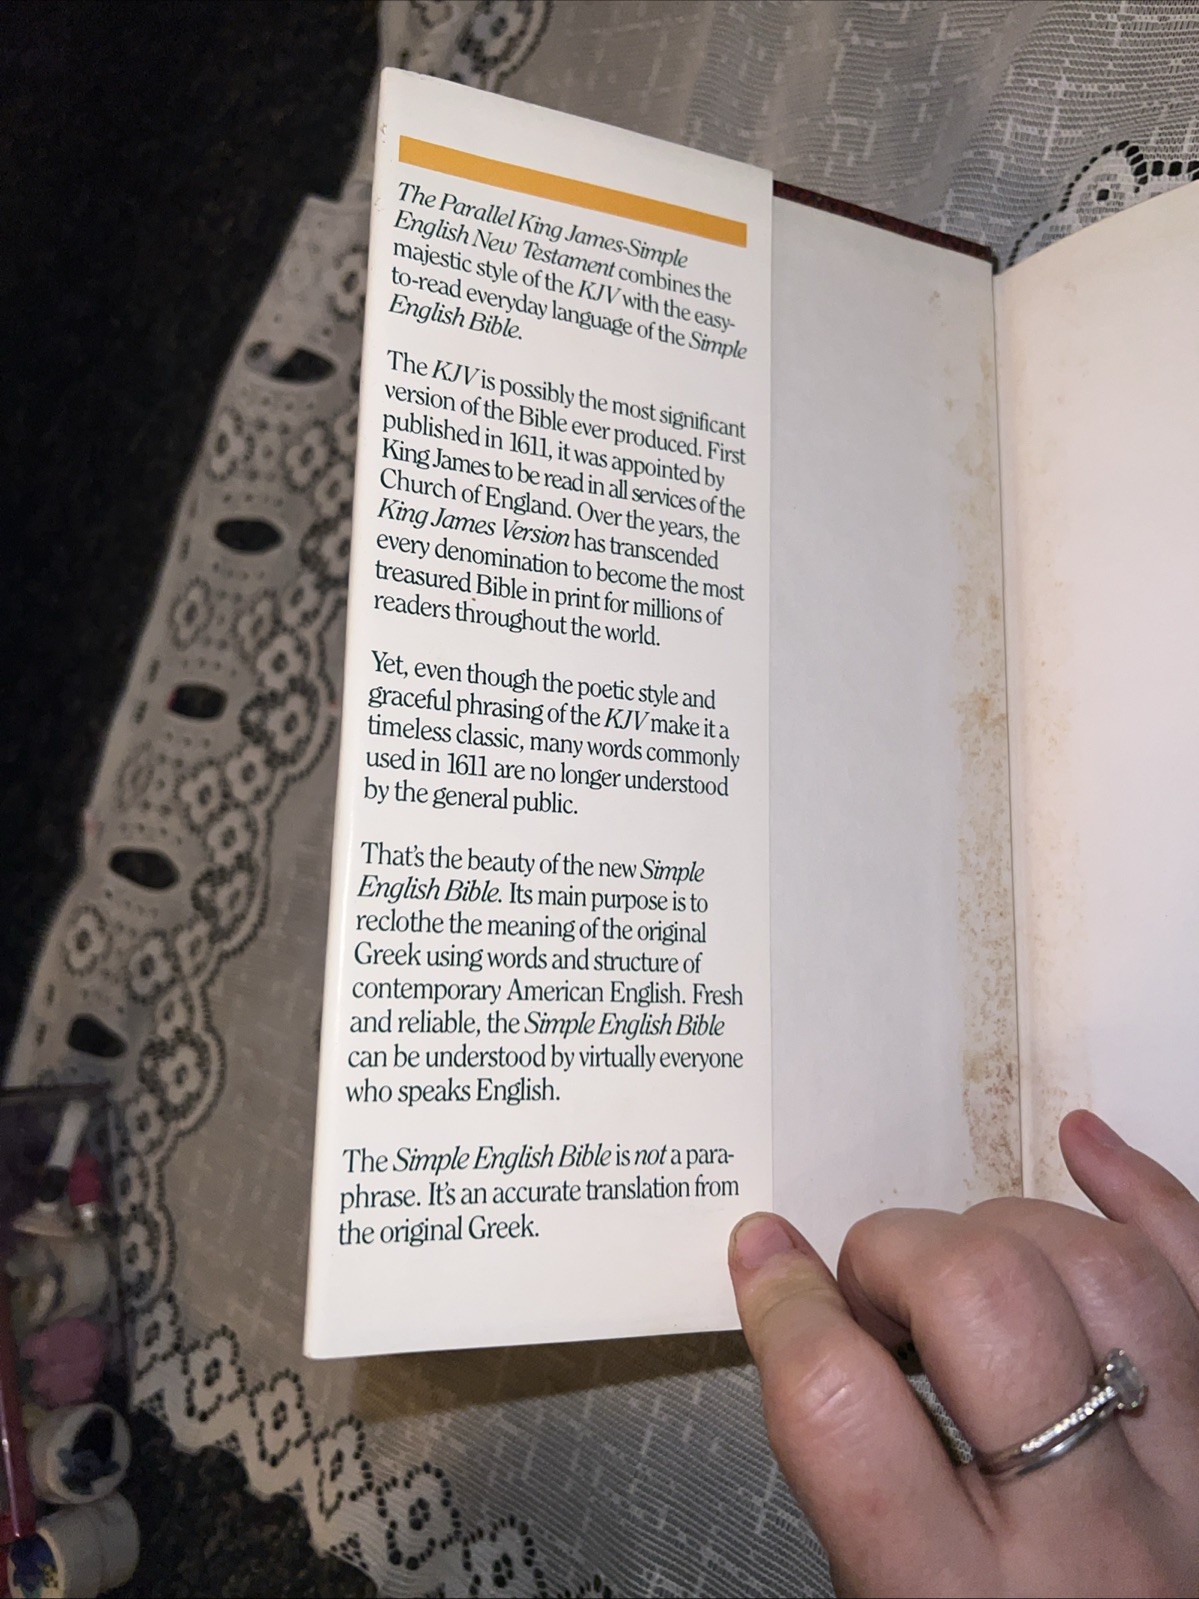 The Parallel King James-Simple
English New Testament combines the
majestic style of the KJV with the easy-
to-read everyday language of the Simple
English Bible.
The KJV is possibly the most significant
version of the Bible ever produced. First
published in 1611, it was appointed by
King James to be read in all services of the
Church of England. Over the years, the
King James Version has transcended
every denomination to become the most
treasured Bible in print for millions of
readers throughout the world.
Yet, even though the poetic style and
graceful phrasing of the KJV make it a
timeless classic, many words commonly
used in 1611 are no longer understood
by the general public.
That's the beauty of the new Simple
English Bible. Its main purpose is to
reclothe the meaning of the original
Greek using words and structure of
contemporary American English. Fresh
and reliable, the Simple English Bible
can be understood by virtually everyone
who speaks English.
The Simple English Bible is not a para-
phrase. It's an accurate translation from
the original Greek.